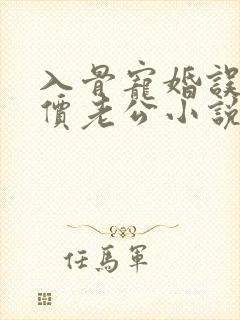 入骨寵婚誤
價老公小說
任馬軍